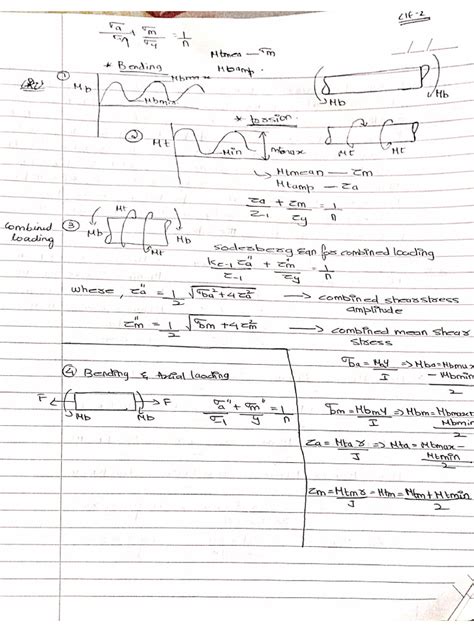 σa/σ-1 + σm/σy = 1/n
Mtmen — σm
Mbamp.
* Bending
①
Mb
Mbmax
Mbmin
Mb
Mb
* torsion
②
Mt
Min
max
Mt
Mt
↳ Mtmean — τm
Mtamp — τa
τa/τ-1 + τm/τy = 1/n
Combined loading
③
Mt
Mb
Mt
Mb
soderberg Eqn for combined loading
τa"/τ-1 + τm"/τy = 1/n
where, τa" = 1/2 √σba² + 4τa² → combined shear stress amplitude
τm" = 1/2 √σbm + 4τm² → combined mean shear stress
④ Bending & Axial loading
F ← → F
Mb
Mb
σa"/σ1 + σm"/y = 1/n
σba = My/I ⇒ Mba = Mbmax - Mbmin
σbm = Mbmy/I ⇒ Mbm = Mbmax+Mbmin/2
τa = Mta r/J ⇒ Mta = Mtmax - Mtmin/2
τm = Mtmr/J = Mtm = Mtm + Mtmin/2